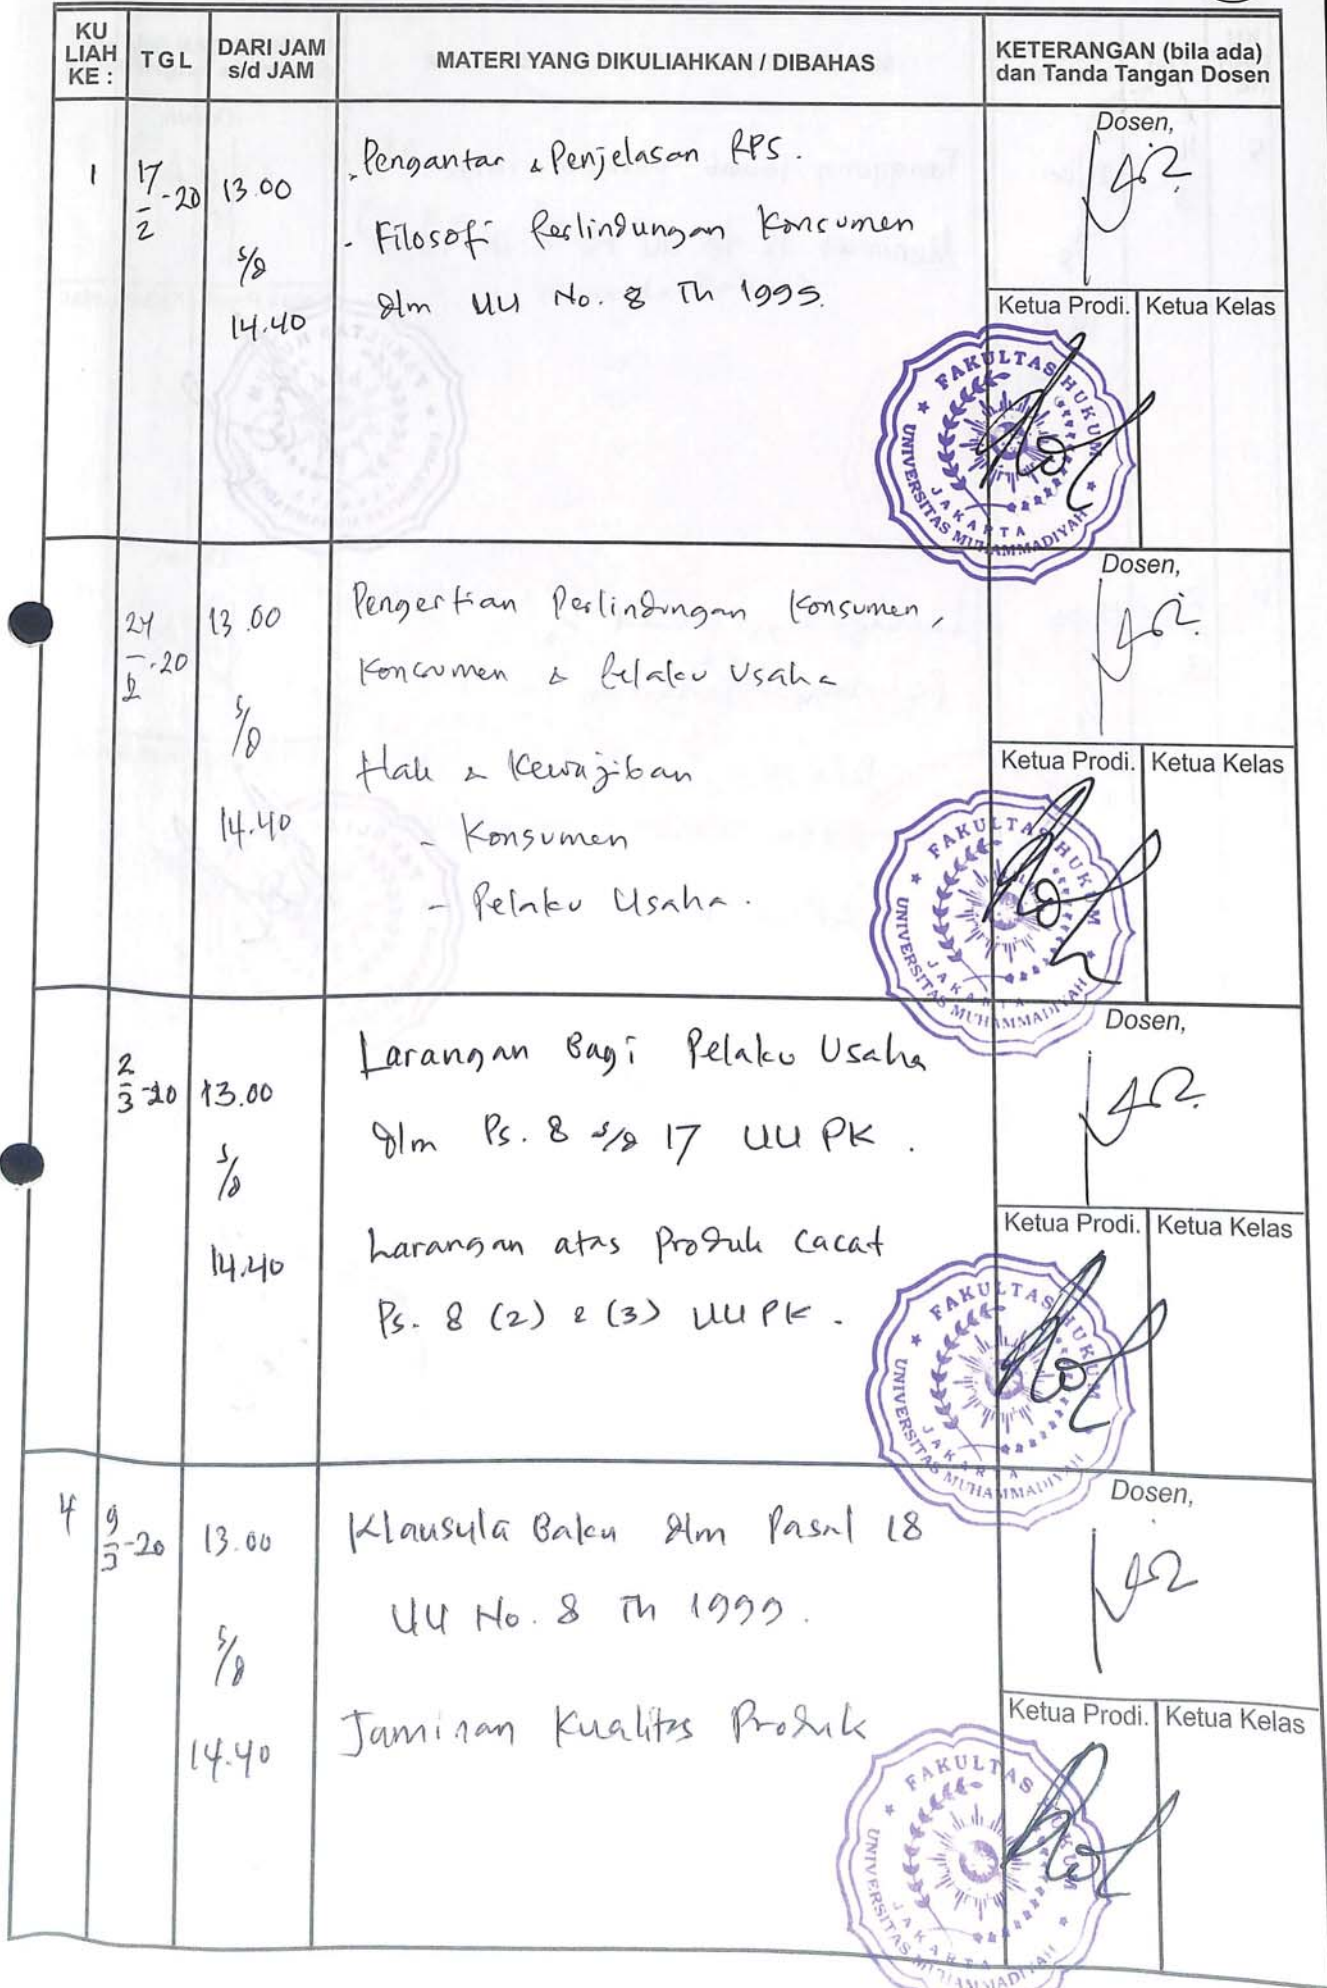 KU LIAH KE :
TGL
DARI JAM s/d JAM
MATERI YANG DIKULIAHKAN / DIBAHAS
KETERANGAN (bila ada) dan Tanda Tangan Dosen
1
17/2-20
13.00
s/d
14.40
- Pengantar & Penjelasan RPS.
- Filosofi Perlindungan Konsumen
dlm UU No. 8 Th 1999.
Dosen,
Ketua Prodi.
Ketua Kelas
FAKULTAS HUKUM
UNIVERSITAS MUHAMMADIYAH
JAKARTA
24/2-20
13.00
s/d
14.40
Pengertian Perlindungan Konsumen,
Konsumen & Pelaku Usaha
Hak & Kewajiban
- Konsumen
- Pelaku Usaha.
Dosen,
Ketua Prodi.
Ketua Kelas
FAKULTAS HUKUM
UNIVERSITAS MUHAMMADIYAH
JAKARTA
2/3-20
13.00
s/d
14.40
Larangan Bagi Pelaku Usaha
dlm Ps. 8 s/d 17 UU PK.
Larangan atas Produk Cacat
Ps. 8 (2) & (3) UU PK.
Dosen,
Ketua Prodi.
Ketua Kelas
FAKULTAS HUKUM
UNIVERSITAS MUHAMMADIYAH
JAKARTA
4
9/3-20
13.00
s/d
14.40
Klausula Baku dlm Pasal 18
UU No. 8 Th 1999.
Jaminan Kualitas Produk
Dosen,
Ketua Prodi.
Ketua Kelas
FAKULTAS HUKUM
UNIVERSITAS MUHAMMADIYAH
JAKARTA